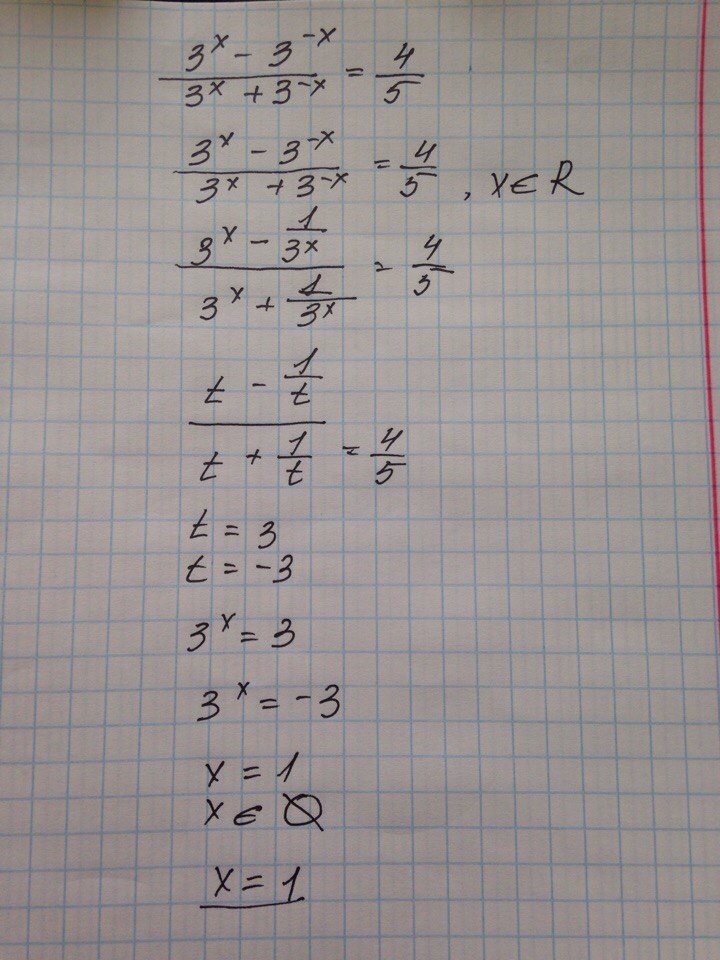 (3^x - 3^-x)/(3^x + 3^-x) = 4/5
(3^x - 3^-x)/(3^x + 3^-x) = 4/5, x∈R
(3^x - 1/3^x)/(3^x + 1/3^x) = 4/5
(t - 1/t)/(t + 1/t) = 4/5
t = 3
t = -3
3^x = 3
3^x = -3
x = 1
x ∈ ∅
x = 1